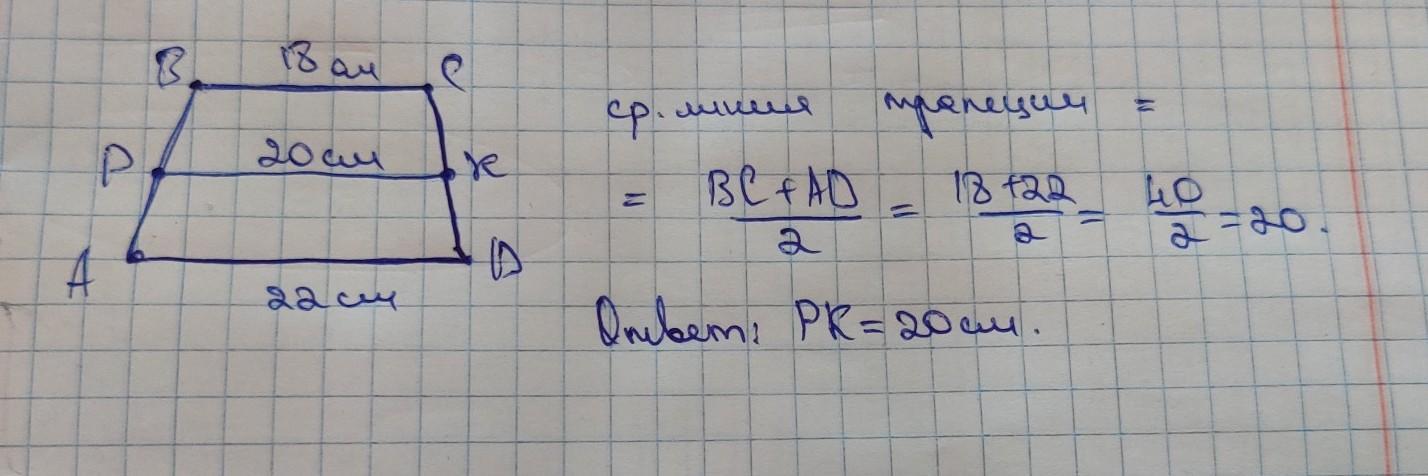 B 18 см C
P 20 см K
A D
22 см
ср. линия трапеции =
= BC + AD / 2 = 18 + 22 / 2 = 40 / 2 = 20.
Ответ: PK = 20 см.